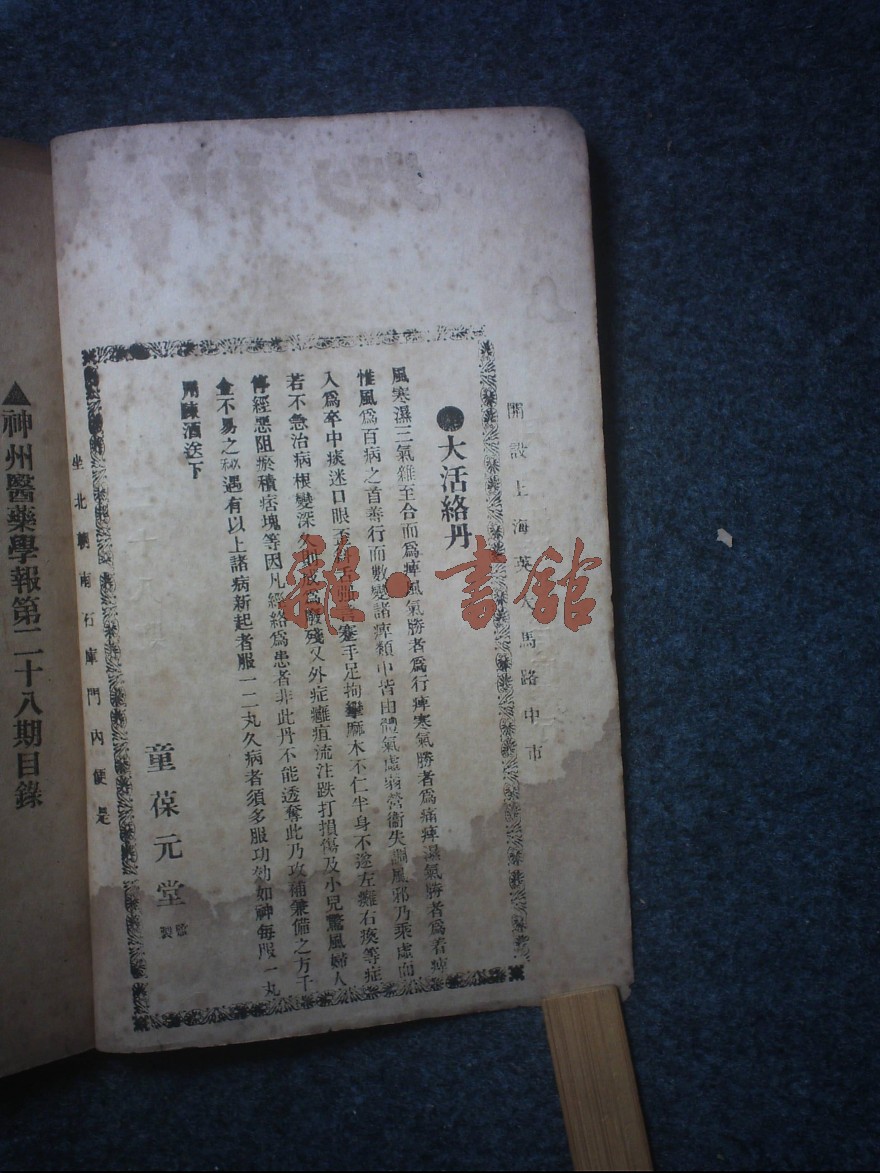 開設上海英大馬路中市
●大活絡丹
風寒濕三氣雜至合而為痺風氣勝者為行痺寒氣勝者為痛痺濕氣勝者為着痺
惟風為百病之首善行而數變諸痺類中皆由體氣虛弱營衞失調風邪乃乘虛而
入為卒中痰迷口眼歪斜舌强 蹇手足拘攣麻木不仁半身不遂左癱右瘓等症
若不急治病根變深久則成為廢殘又外症癰疽流注跌打損傷及小兒驚風婦人
停經惡阻瘀積痞塊等因凡經絡為患者非此丹不能透奪此乃攻補兼備之方千
金不易之秘遇有以上諸病新起者服一二丸久病者須多服功効如神每服一丸
用陳酒送下
童葆元堂 監製
坐北朝南石庫門內便是
▲神州醫藥學報第二十八期目錄
雜·書館